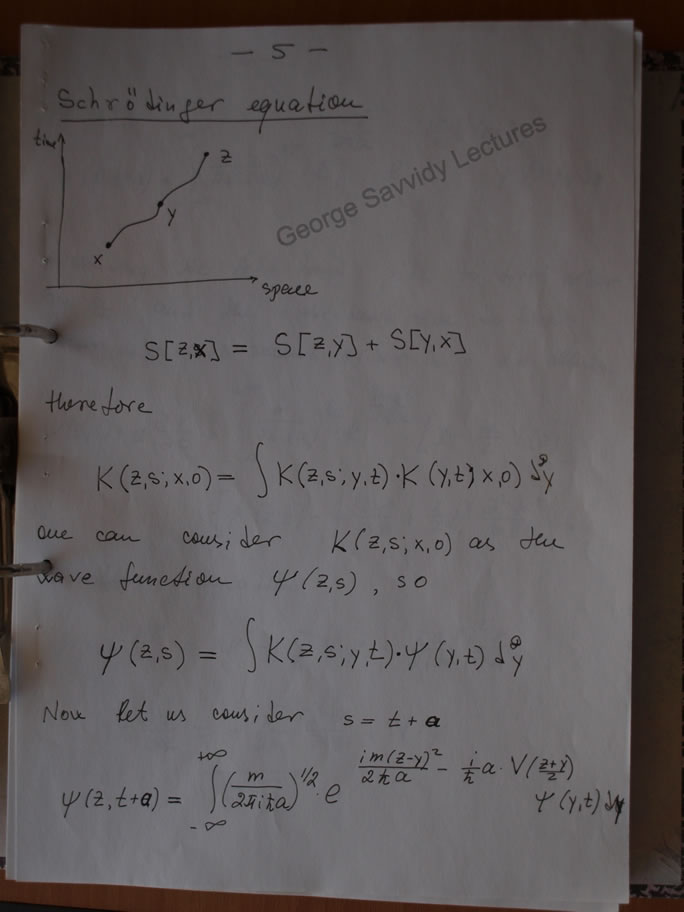 — 5 —
Schrödinger equation
time
z
George Savvidy Lectures
y
x
space
S[z,x] = S[z,y] + S[y,x]
therefore
K(z,s;x,0) = ∫ K(z,s;y,t)·K(y,t;x,0) dy
one can consider K(z,s;x,0) as the
wave function Ψ(z,s), so
Ψ(z,s) = ∫ K(z,s;y,t)·Ψ(y,t) dy
Now let us consider s = t + a
Ψ(z,t+a) = ∫_{-∞}^{+∞} (m/2πiħa)^{1/2} · e^{im(z-y)²/2ħa - i/ħ a·V(z+y/2)} Ψ(y,t) dy